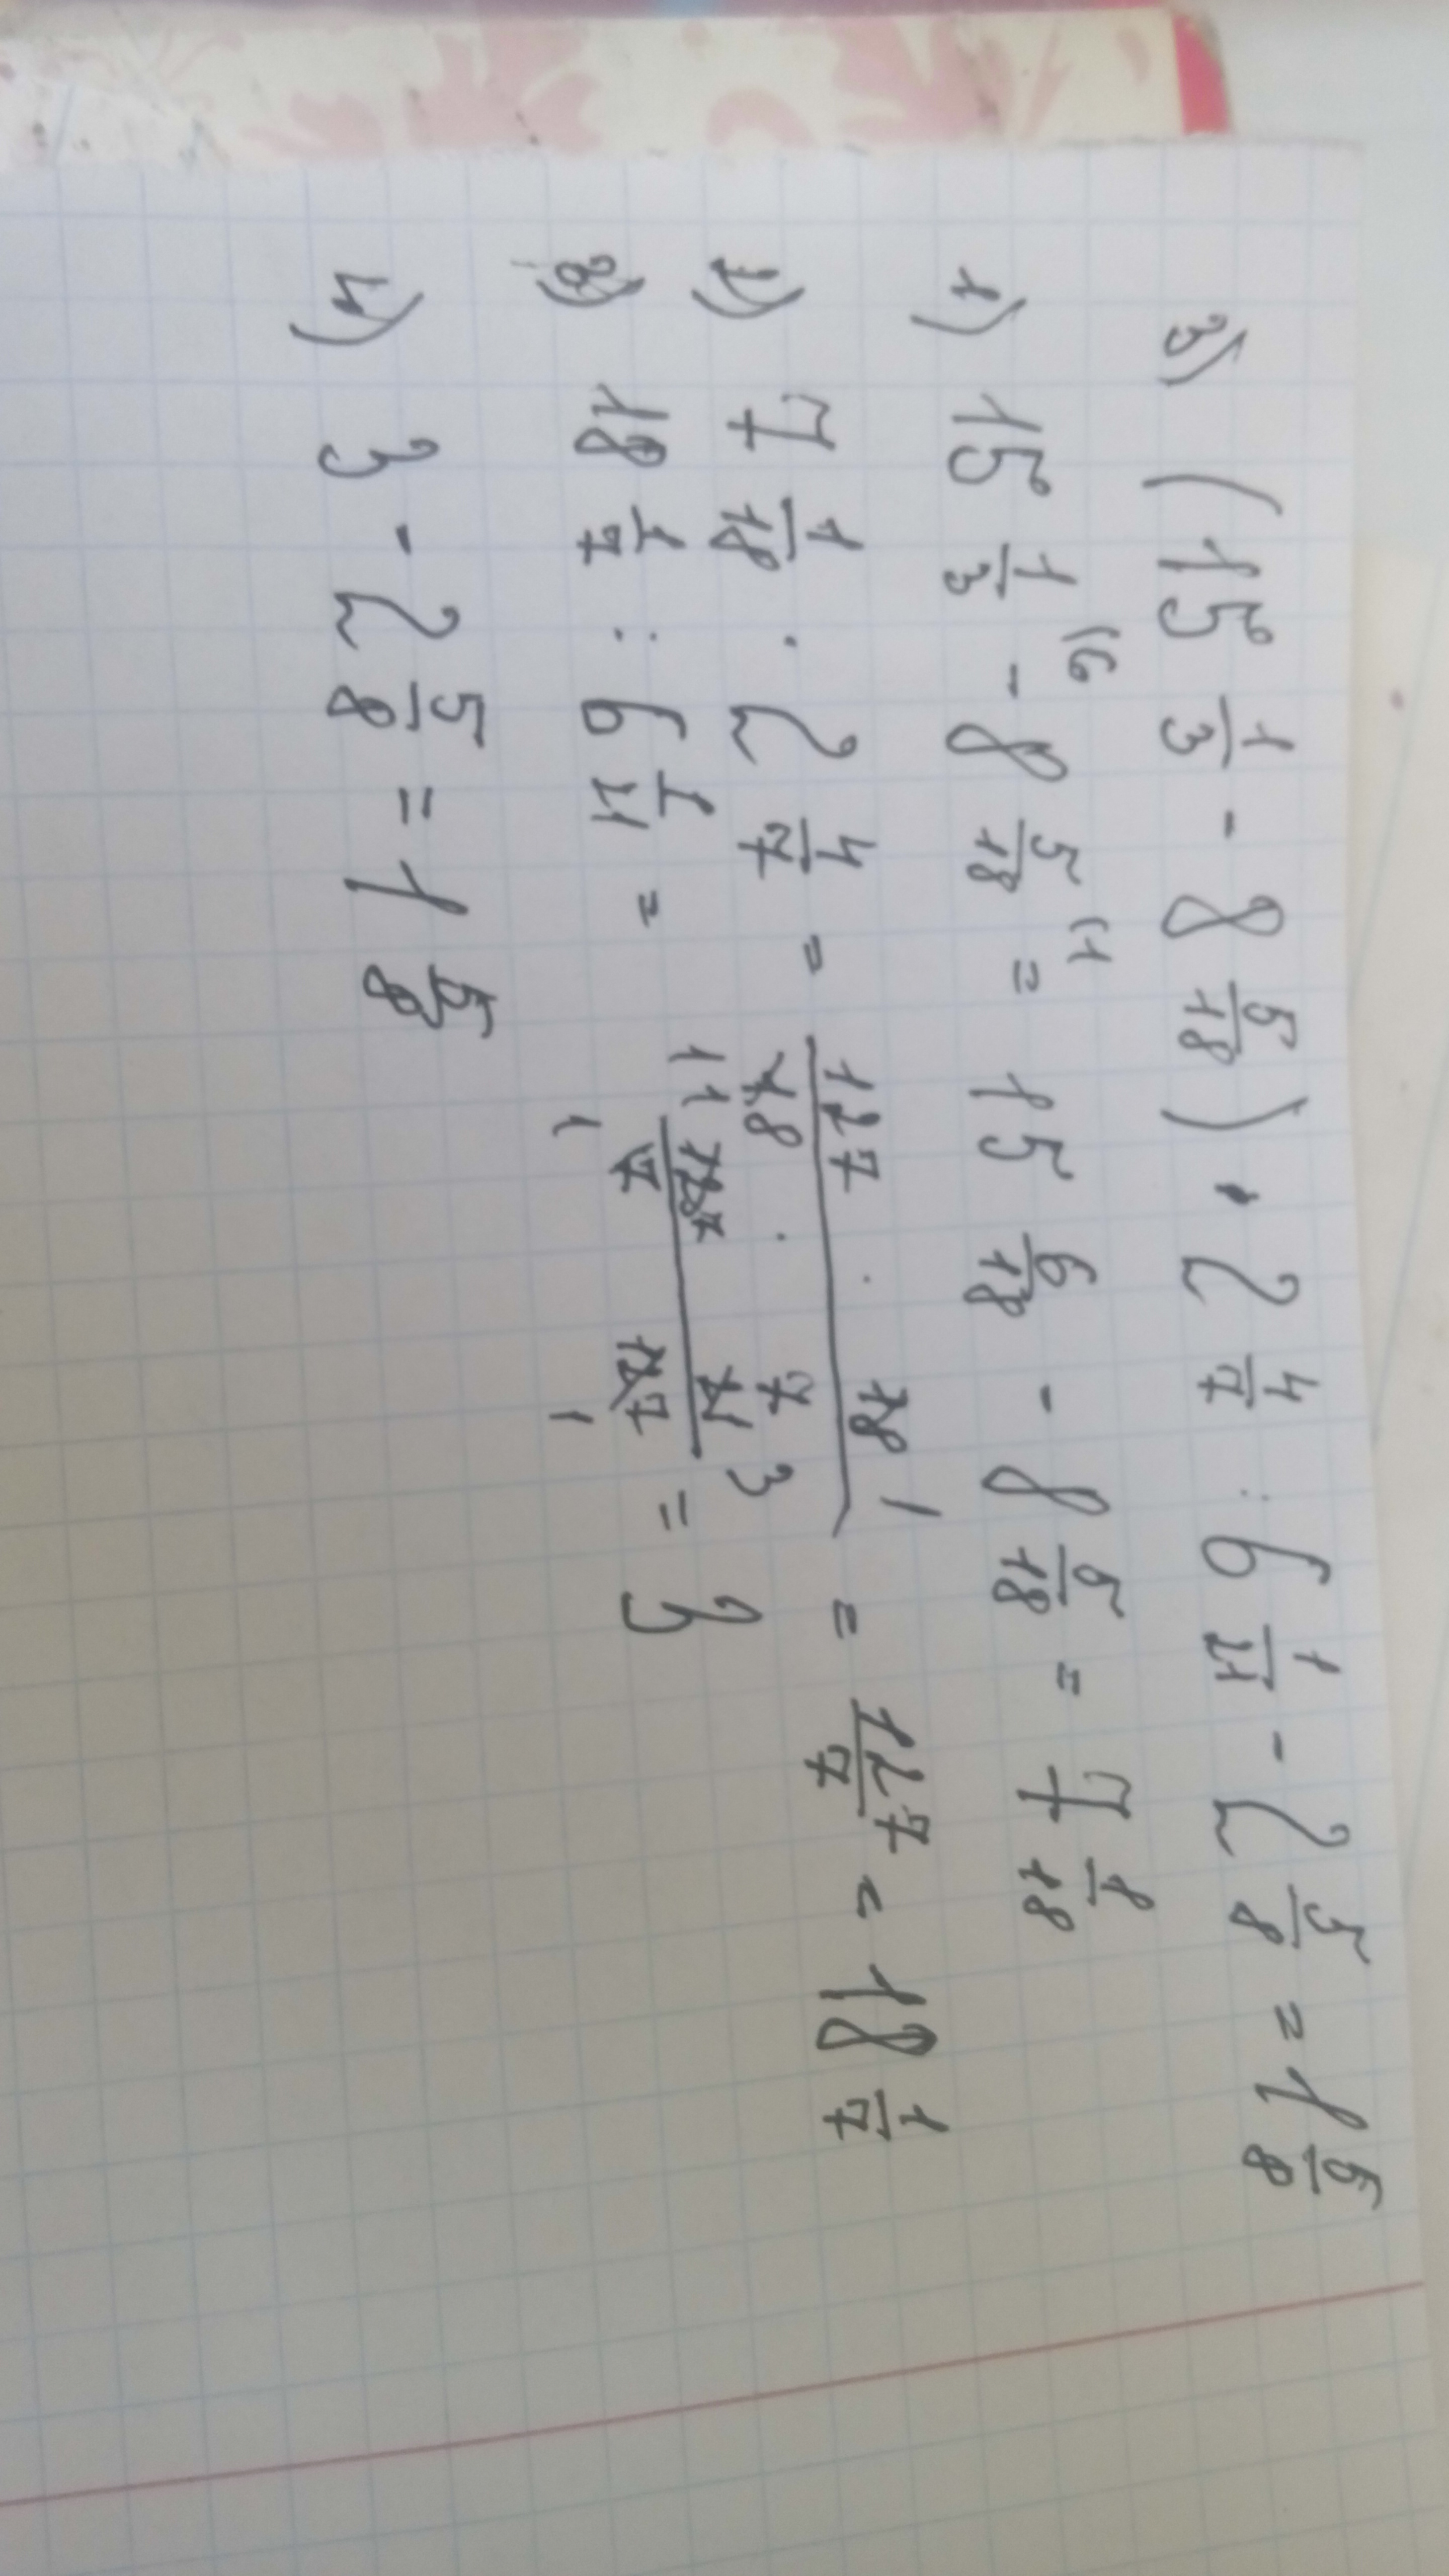 3) (15 1/3 - 8 5/18) · 2 4/7 : 6 1/21 - 2 5/8 = 1 5/8
1) 15 1/3 (6 - 8 5/18 (1 = 15 6/18 - 8 5/18 = 7 1/18
2) 7 1/18 · 2 4/7 = 127 · 18 1 / 18 · 7 = 127/7 = 18 1/7
3) 18 1/7 : 6 1/21 = 1 127 · 21 3 / 1 7 · 127 1 = 3
4) 3 - 2 5/8 = 1 5/8